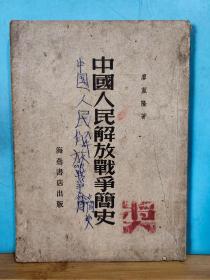 廖蓋隆 著
中國人民解放戰爭簡史
中国人民解放战争簡史
海燕書店出版
奖